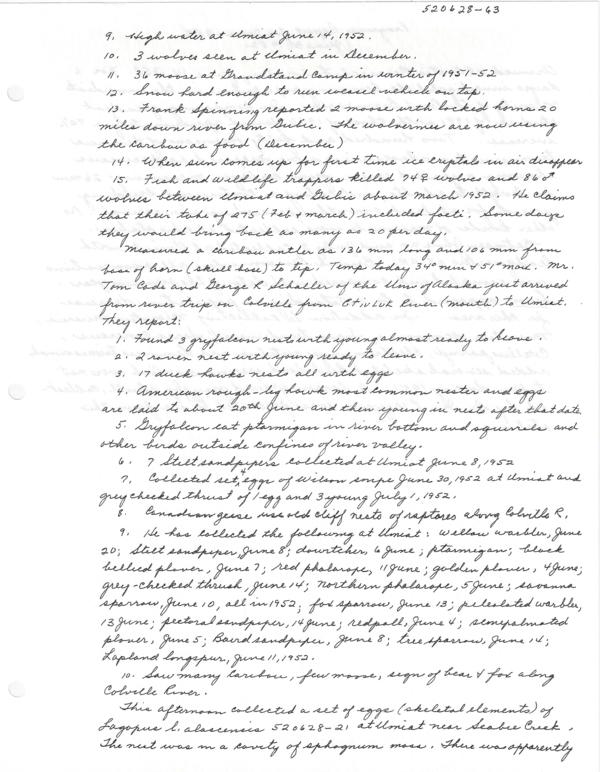 520628-63
9. High water at Umiat June 14, 1952.
10. 3 wolves seen at Umiat in December.
11. 36 moose at Grandstand Camp in winter of 1951-52
12. Snow hard enough to run weasel vehicle on top.
13. Frank Spinning reported 2 moose with locked horns 20
miles down river from Gubic. The wolverines are now using
the caribou as food (December)
14. When sun comes up for first time ice crystals in air disappear
15. Fish and Wildlife trappers killed 74♀ wolves and 86♂
wolves between Umiat and Gubic about March 1952. He claims
that their take of 275 (Feb & March) included foeti. Some days
they would bring back as many as 20 per day.
Measured a caribou antler as 136 mm long and 106 mm from
base of horn (skull base) to tip. Temp today 34° min & 51° max. Mr.
Tom Cade and George B Schaller of the Univ of Alaska just arrived
from river trip on Colville from Etivluk River (mouth) to Umiat.
They report:
1. Found 3 gryfalcon nests with young almost ready to leave.
2. 2 raven nest with young ready to leave.
3. 17 duck hawks nests all with eggs
4. American rough-leg hawk most common nester and eggs
are laid to about 20th June and then young in nests after that date.
5. Gryfalcon eat ptarmigan in river bottom and squirrels and
other birds outside confines of river valley.
6. 7 Stilt sandpipers collected at Umiat June 8, 1952
7. Collected set 4 eggs of Wilson snipe June 30, 1952 at Umiat and
grey checked thrust of 1 egg and 3 young July 1, 1952.
8. Canadian geese use old cliff nests of raptores along Colville R.
9. He has collected the following at Umiat: Willow warbler, June
20; Stilt sandpiper June 8; dowitcher, 6 June; ptarmigan; black
bellied plover, June 7; red phalarope, 11 June; golden plover, 4 June;
grey-checked thrush, June 14; Northern phalarope, 5 June; savanna
sparrow, June 10, all in 1952; fox sparrow, June 13; pileolated warbler,
13 June; pectoral sandpiper, 14 June; redpoll, June 4; semipalmated
plover, June 5; Baird sandpiper, June 8; tree sparrow, June 14;
Lapland longspur, June 11, 1952.
10. Saw many caribou, few moose, sign of bear & fox along
Colville River.
This afternoon collected a set of eggs (skeletal elements) of
Lagopus l. alascensis 520628-21 at Umiat near Seabee Creek.
The nest was in a cavity of sphagnum moss. There was apparently